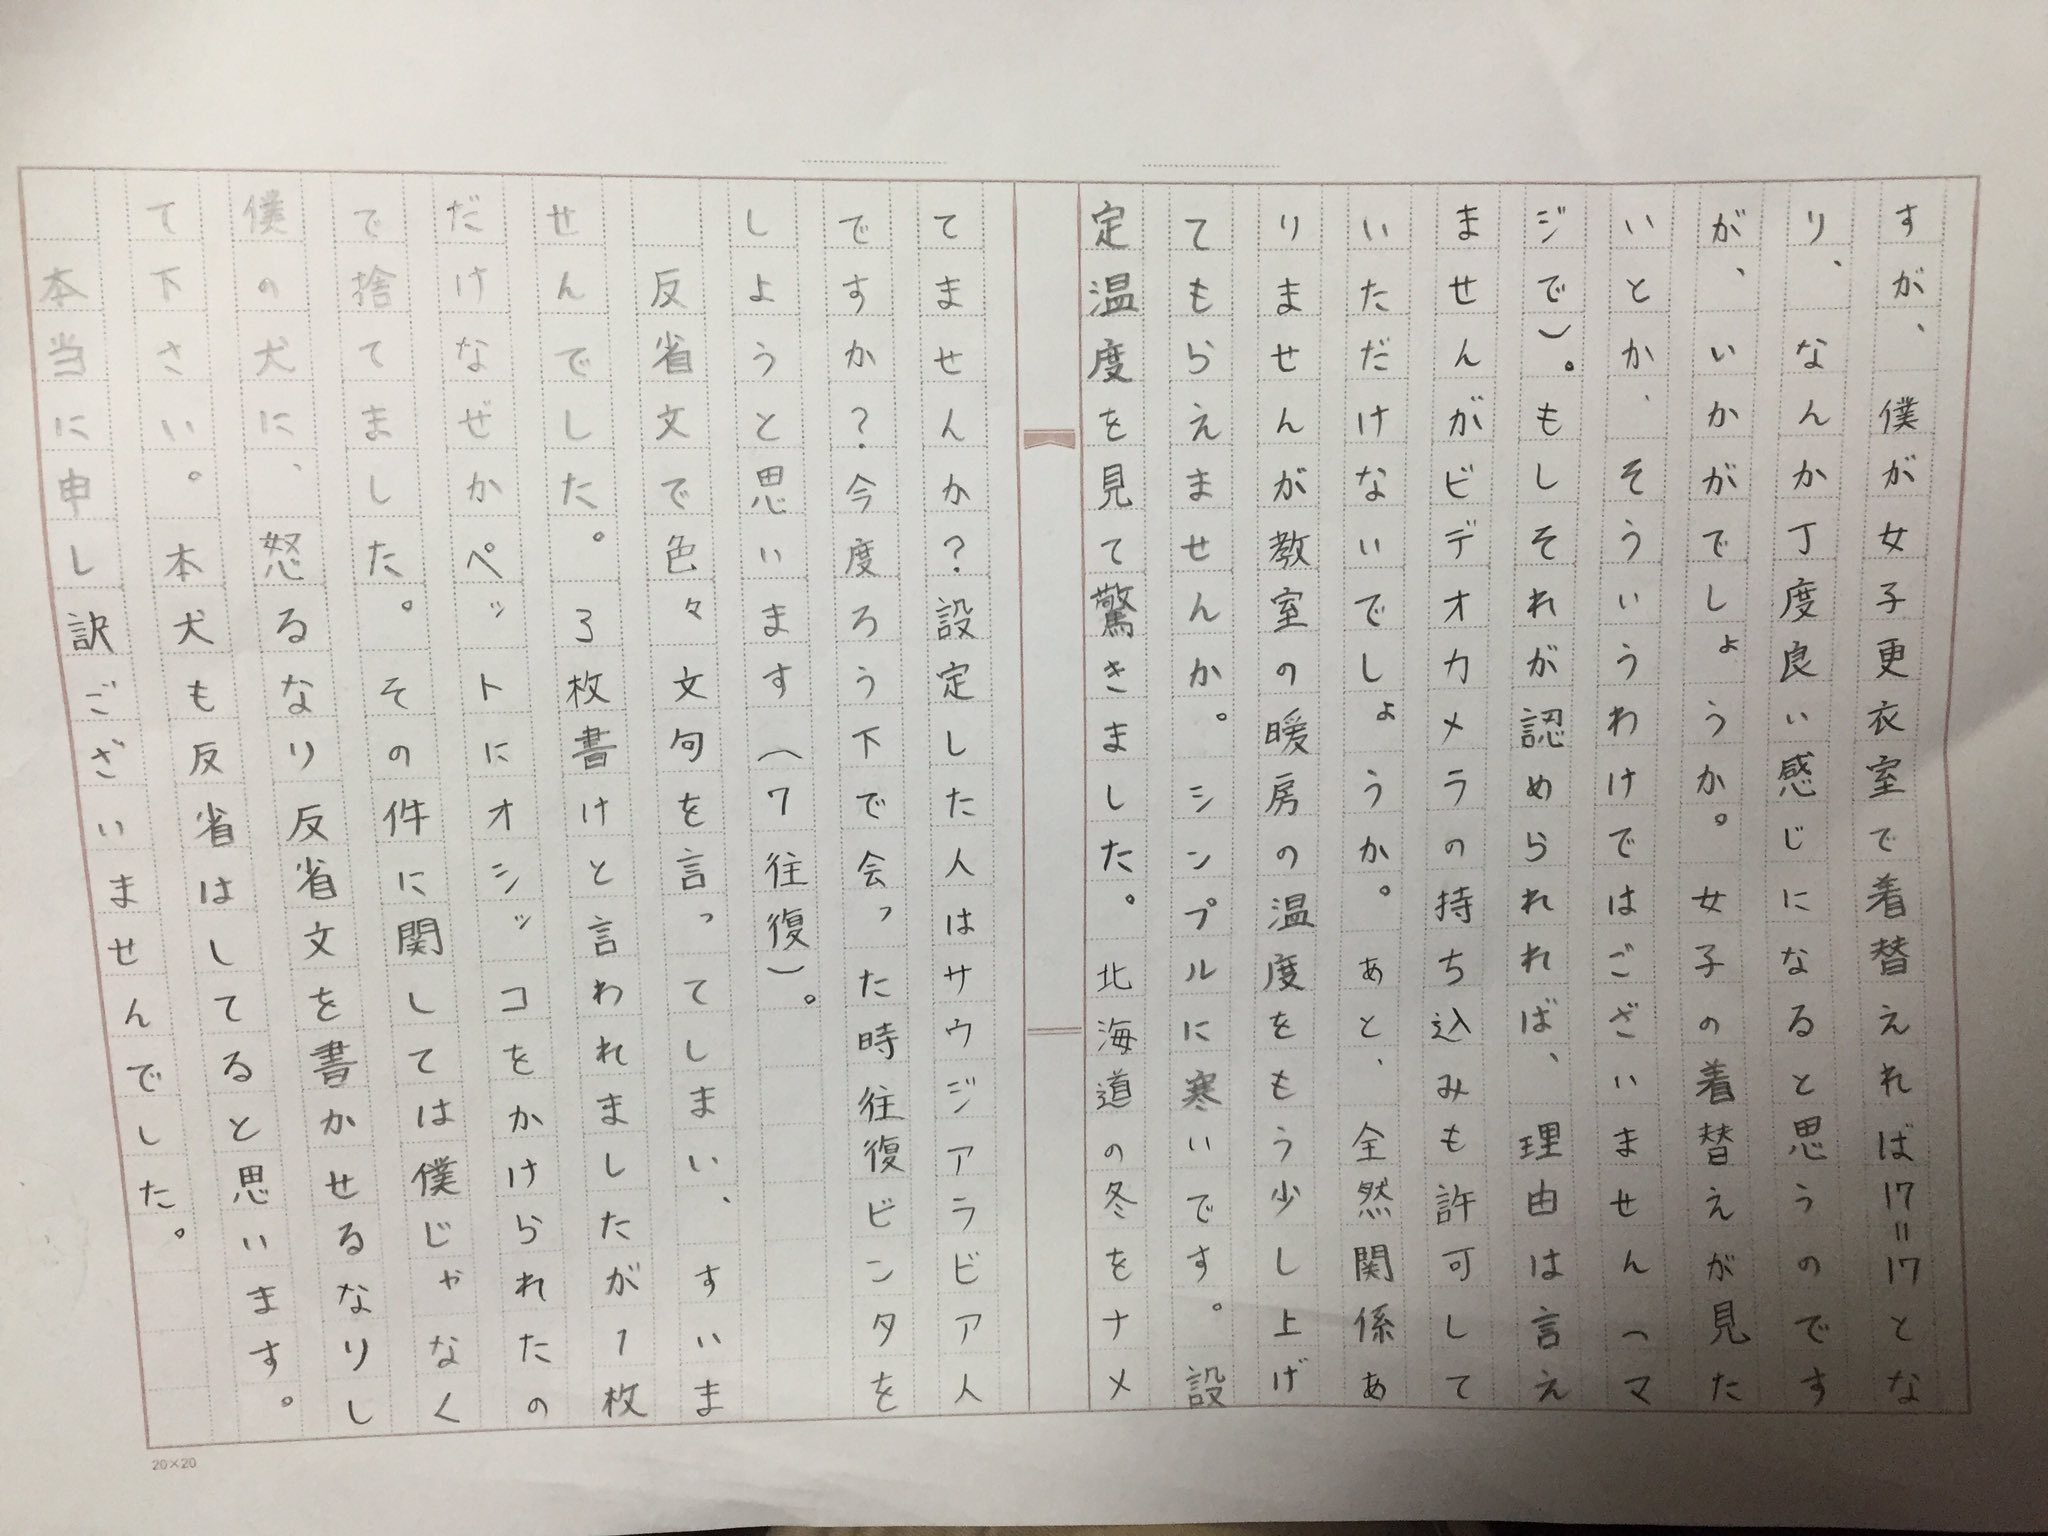 すが、僕が女子更衣室で着替えれば17=17とな
り、なんか丁度良い感じになると思うのです
が、いかがでしょうか。女子の着替えが見た
いとか、そういうわけではございません(マ
ジで)。もしそれが認められれば、理由は言え
ませんがビデオカメラの持ち込みも許可して
いただけないでしょうか。あと、全然関係あ
りませんが教室の暖房の温度をもう少し上げ
てもらえませんか。シンプルに寒いです。設
定温度を見て驚きました。北海道の冬をナメ
てませんか?設定した人はサウジアラビア人
ですか?今度ろう下で会った時往復ビンタを
しようと思います(7往復)。
反省文で色々文句を言ってしまい、すいま
せんでした。3枚書けと言われましたが1枚
だけなぜかペットにオシッコをかけられたの
で捨てました。その件に関しては僕じゃなく
僕の犬に、怒るなり反省文を書かせるなりし
て下さい。本犬も反省はしてると思います。
本当に申し訳ございませんでした。
20×20